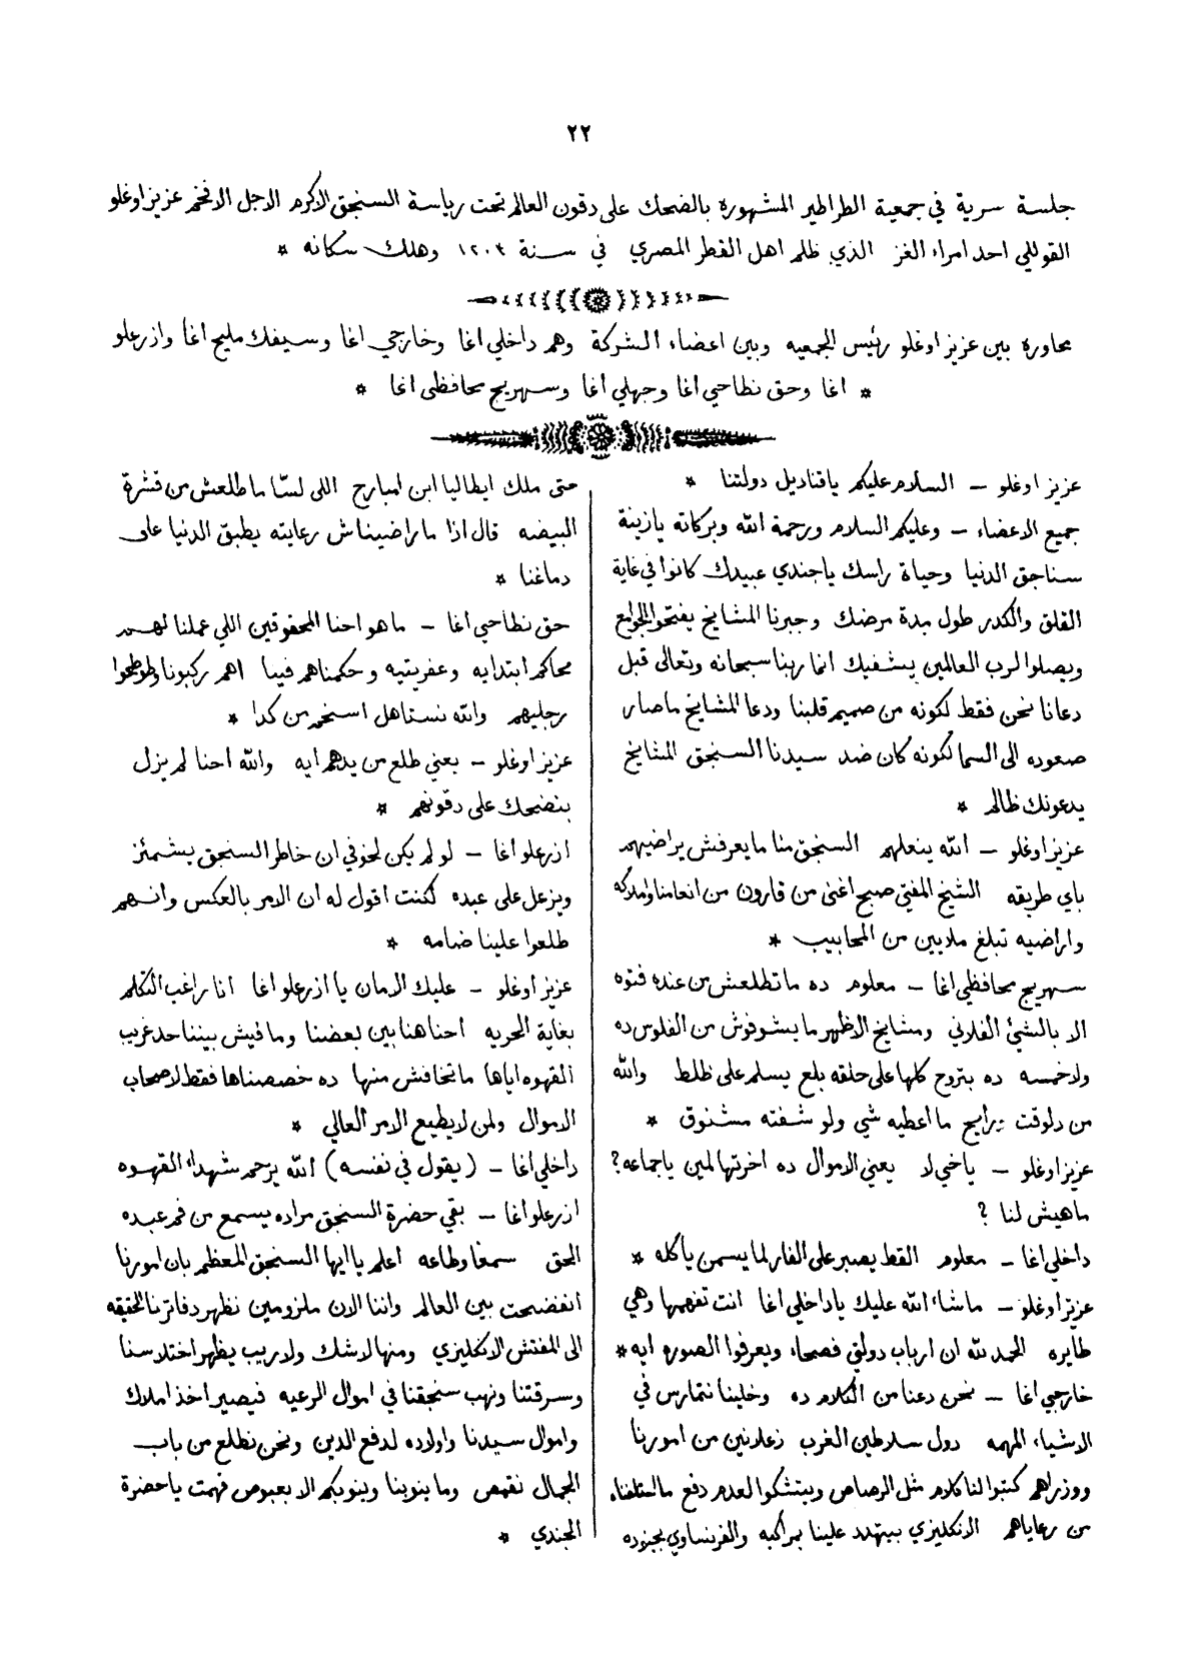 ٢٢
جلسة سرية في جمعية الطراطير المشهورة بالضحك على دقون العالم تحت رياسة السنجق الاكرم الاجل الافخم عزيز اوغلو
القوللي احد امراء الغز الذي ظلم اهل القطر المصري في سنة ١٢٠٣ وهلك سكانه *
محاورة بين عزيز اوغلو رئيس الجمعيه وبين اعضاء الشركة وهم داخلي اغا وخارجي اغا وسيفك مليح اغا وازرعلو
* اغا وحق نطاحي اغا وجهلي اغا وسهريج محافظي اغا *
عزيز اوغلو – السلام عليكم ياقناديل دولتنا *
جميع الاعضاء – وعليكم السلام ورحمة الله وبركاته يازينة
سناجق الدنيا وحياة راسك ياجندي عبيدك كانوا في غاية
القلق والكدر طول مدة مرضك وجبرنا المشايخ يفتحوا الجوامع
ويصلوا لرب العالمين يشفيك انما ربنا سبحانه وتعالى قبل
دعانا نحن فقط لكونه من صميم قلبنا ودعا المشايخ ماصار
صعوده الى السما لكونه كان ضد سيدنا السنجق المشايخ
يدعونك ظالم *
عزيز اوغلو – الله ينعلهم السنجق منا مايعرفش يراضيهم
باي طريقه الشيخ المفتي صبح اغنى من قارون من انعامنا واملاكه
واراضيه تبلغ ملايين من المحابيب *
سهريج محافظي اغا – معلوم ده ماتطلعش من عنده فتوه
الا بالشئ الفلاني ومشايخ الازهر مايشوفوش من الفلوس ده
ولاخمسه ده بتروح كلها على حلقه بلع يسلم على ظلط والله
من دلوقت ورايح مااعطيه شي ولو شفته مشنوق *
عزيز اوغلو – ياخي لا يعني الاموال ده اخرتها لمين ياجماعه؟
ماهيش لنا ؟
داخلي اغا – معلوم القط يصبر على الفار لما يسمن ياكله *
عزيز اوغلو – ماشاء الله عليك ياداخلي اغا انت تفهمها وهي
طايره الحمد لله ان ارباب دولتي فصحاء ويعرفوا الصوره ايه *
خارجي اغا – نحن دعنا من الكلام ده وخلينا نتمارس في
الاشياء المهمه دول سلاطين الغرب زعلانين من امورنا
ووزراهم كتبوا لنا كلام مثل الرصاص وبيتشكوا لعدم دفع ما استلفناه
من رعاياهم الانكليزي بيتهدد علينا بمراكبه والفرنساوي بجنوده
حتى ملك ايطاليا ابن امبارح اللى لسّا ماطلعش من قشرة
البيضه قال اذا ماراضيناش رعايته يطبق الدنيا على
دماغنا *
حق نطاحي اغا – ماهو احنا المحقوقين اللي عملنا لهم
محاكم ابتدايه وعفريتيه وحكمناهم فينا اهم ركبونا وطوطحوا
رجليهم والله نستاهل اسخم من كدا *
عزيز اوغلو – يعني طلع من يدهم ايه والله احنا لم يزل
بنضحك على دقونهم *
ازرعلو اغا – لو لم يكن لخوفي ان خاطر السنجق يشمئز
ويزعل على عبده لكنت اقول له ان الامر بالعكس وانهم
طلعوا علينا ضامه *
عزيز اوغلو – عليك الامان يا ازرعلو اغا انا راغب التكلم
بغاية الحريه احنا هنا بين بعضنا ومافيش بيننا حد غريب
القهوه اياها ماتخافش منها ده خصصناها فقط لاصحاب
الاموال ولمن لايطيع الامر العالي *
داخلي اغا – (يقول في نفسه) الله يرحم شهداء القهوه
ازرعلو اغا – بقي حضرة السنجق مراده يسمع من فم عبده
الحق سمعًا وطاعه اعلم ياايها السنجق المعظم بان امورنا
انفضحت بين العالم واننا الان ملزومين نظهر دفاترنا الحقيقه
الى المفتش الانكليزي ومنها لاشك ولاريب يظهر اختلاسنا
وسرقتنا ونهب سنجقنا في اموال الرعيه فيصير اخذ املاك
واموال سيدنا واولاده لدفع الدين ونحن نطلع من باب
الجمال نقمص وماينوبنا وينوبكم الا بعبوص فهمت ياحضرة
الجندي *